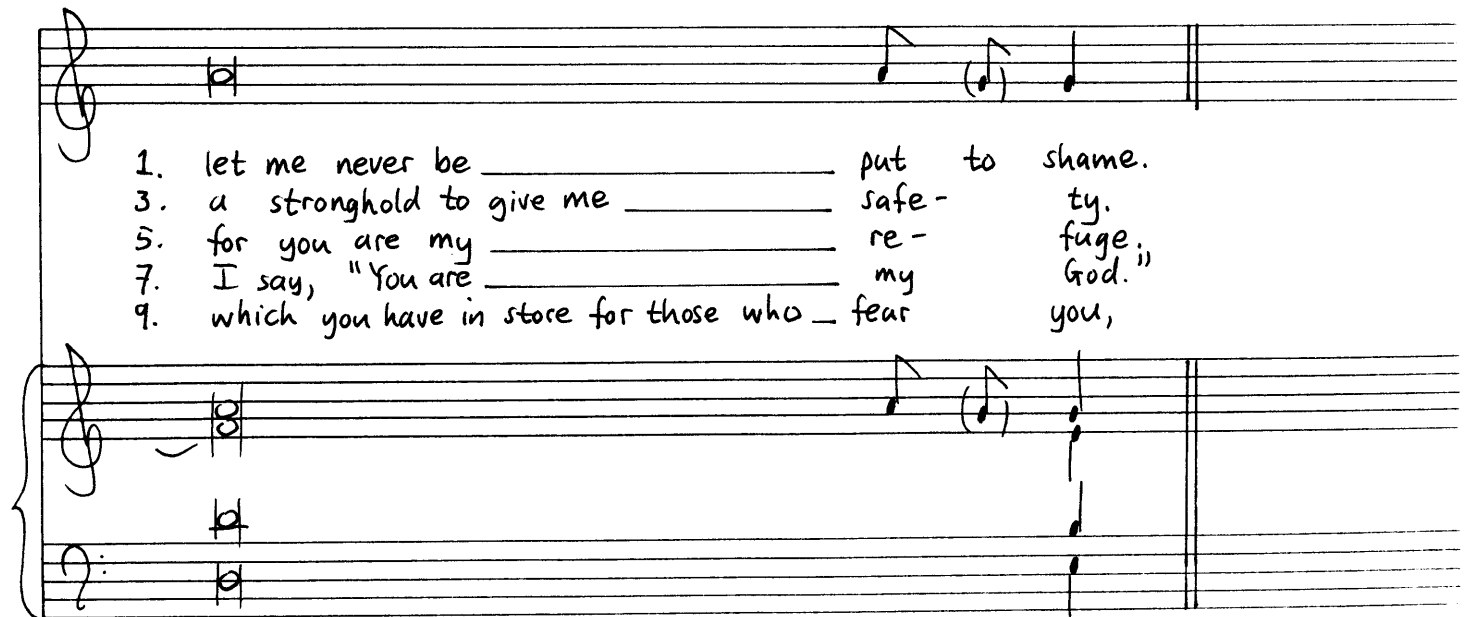 1. let me never be ______ put to shame.
3. a stronghold to give me ______ safe- ty.
5. for you are my ______ re- fuge.
7. I say, "You are ______ my God."
9. which you have in store for those who _ fear you,